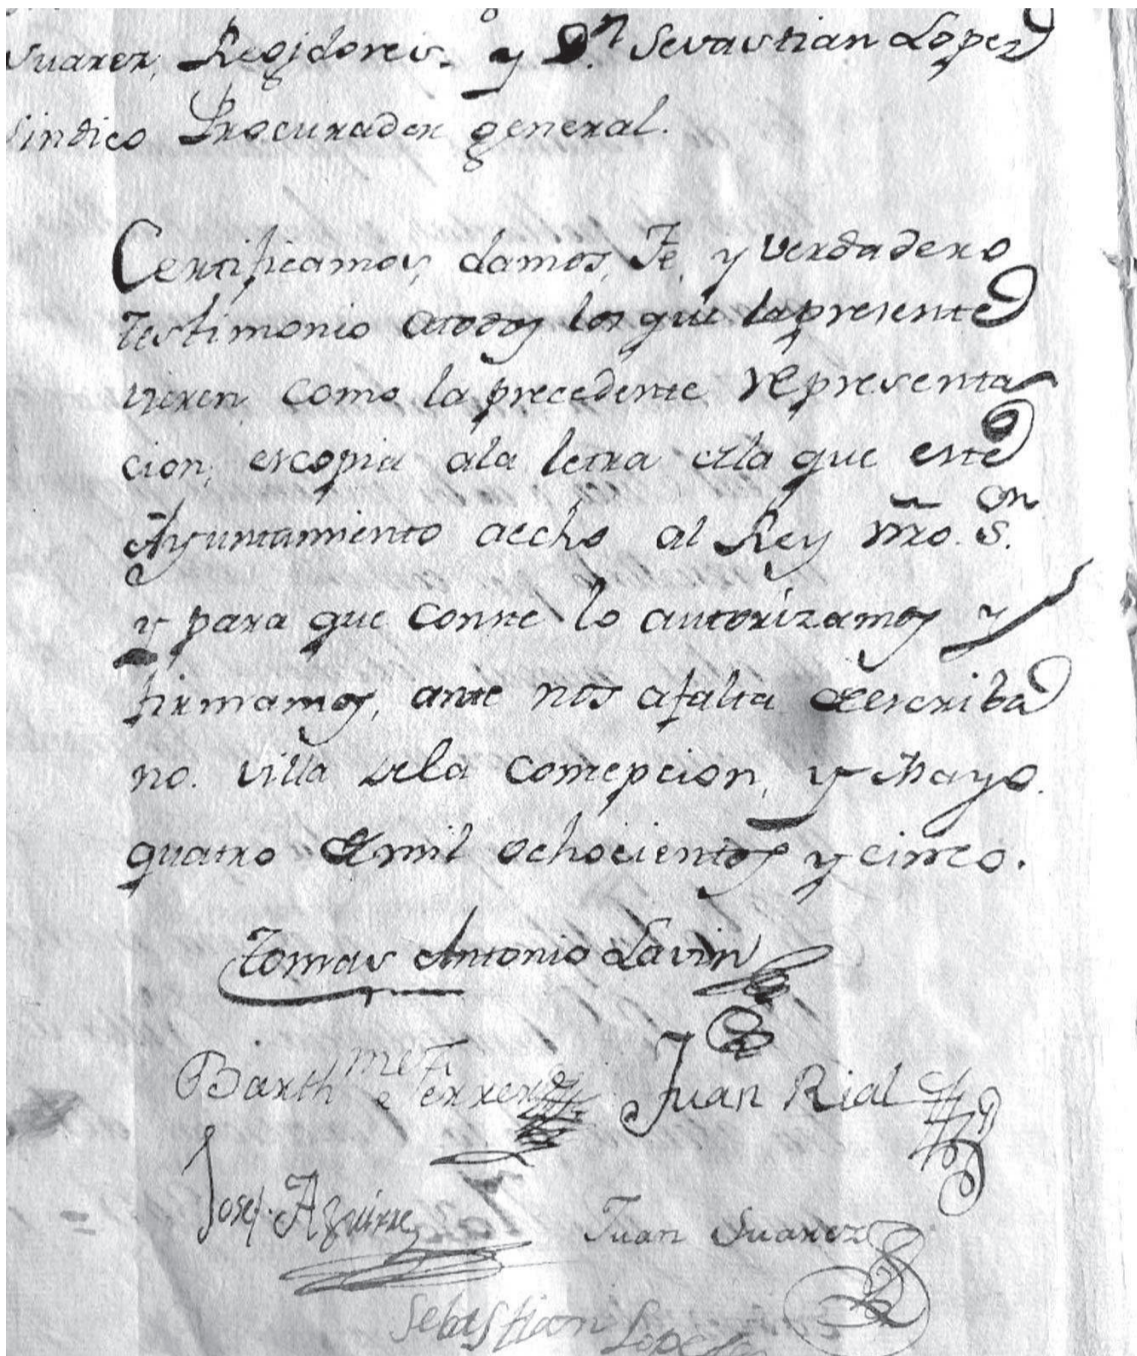 Suarez, Regidores. y Dn. Sevastian Lopez
Sindico Procurador general.
Certificamos, damos, Fe, y verdadero
testimonio atodos los que lapresente
vieren como la precedente representa
cion, escopia ala letra dela que este
Ayuntamiento aecho al Rey ñro. Sor.
y para que conste lo autorizamos y
firmamos, ante nos afalta deescriba
no. Villa dela Comcepcion, y Mayo.
quatro de mil ochocientos y cinco.
Tomas Antonio Lavin
Barthme Ferrer
Juan Rial
Josef Aguirre
Juan Suarez
Sebastian Lopes